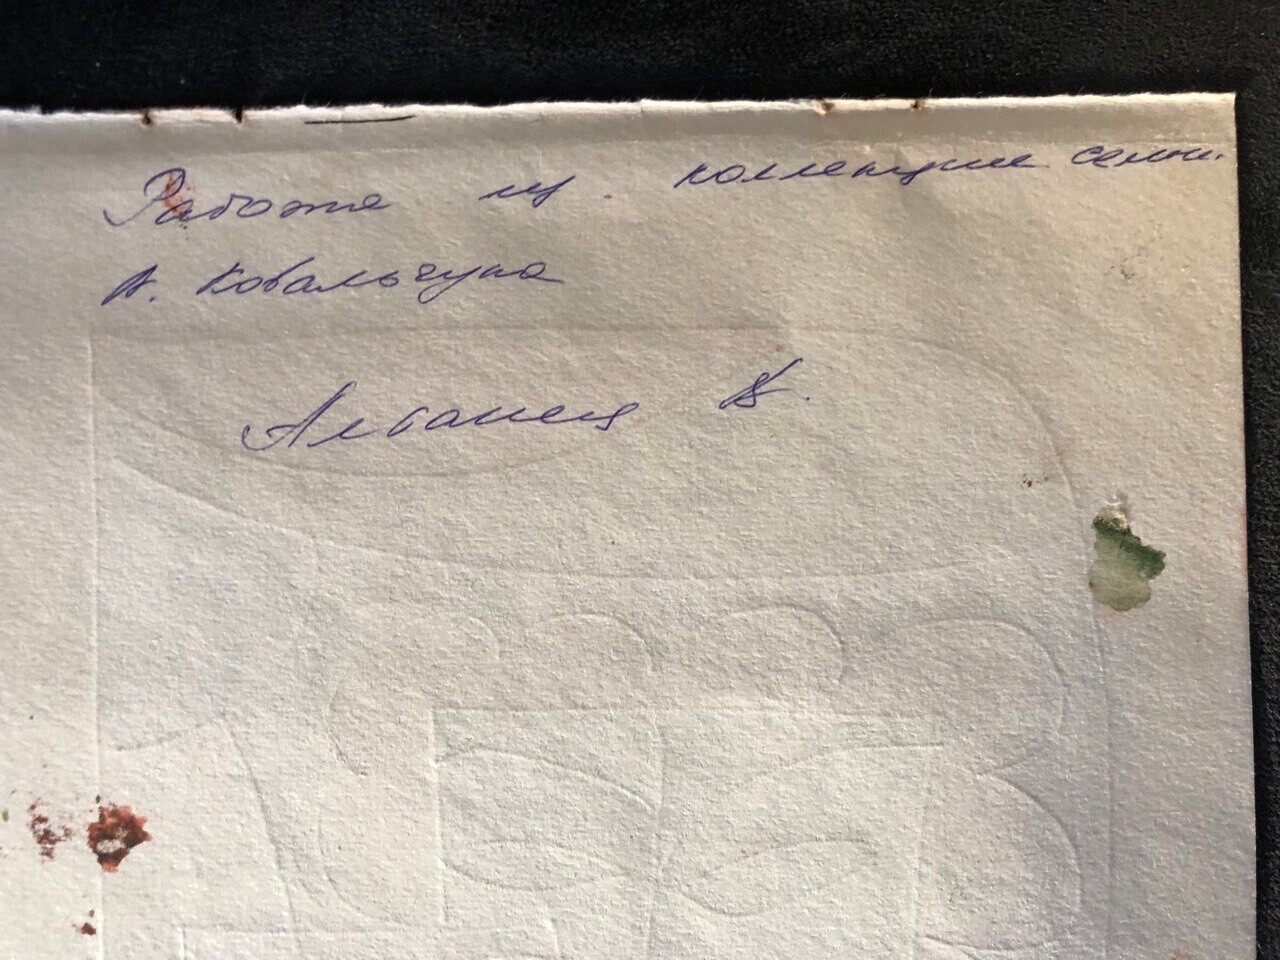 Работа из. коллекции семьи.
А. Ковальчука
Албанец А.